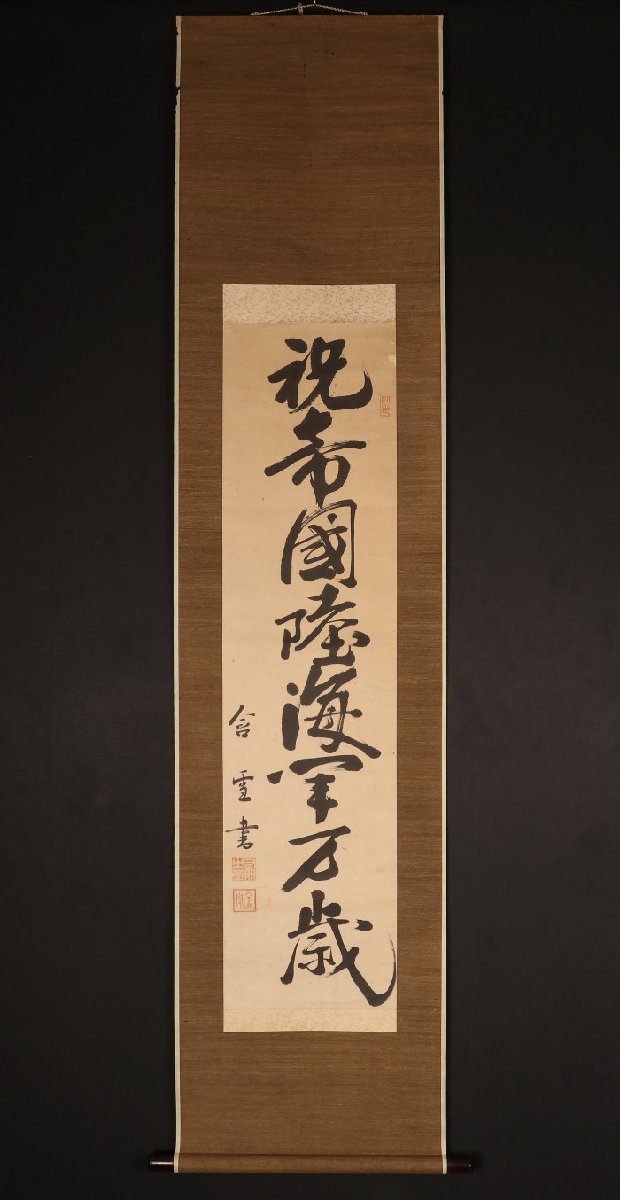 祝帝國陸海軍万歳
含雪書